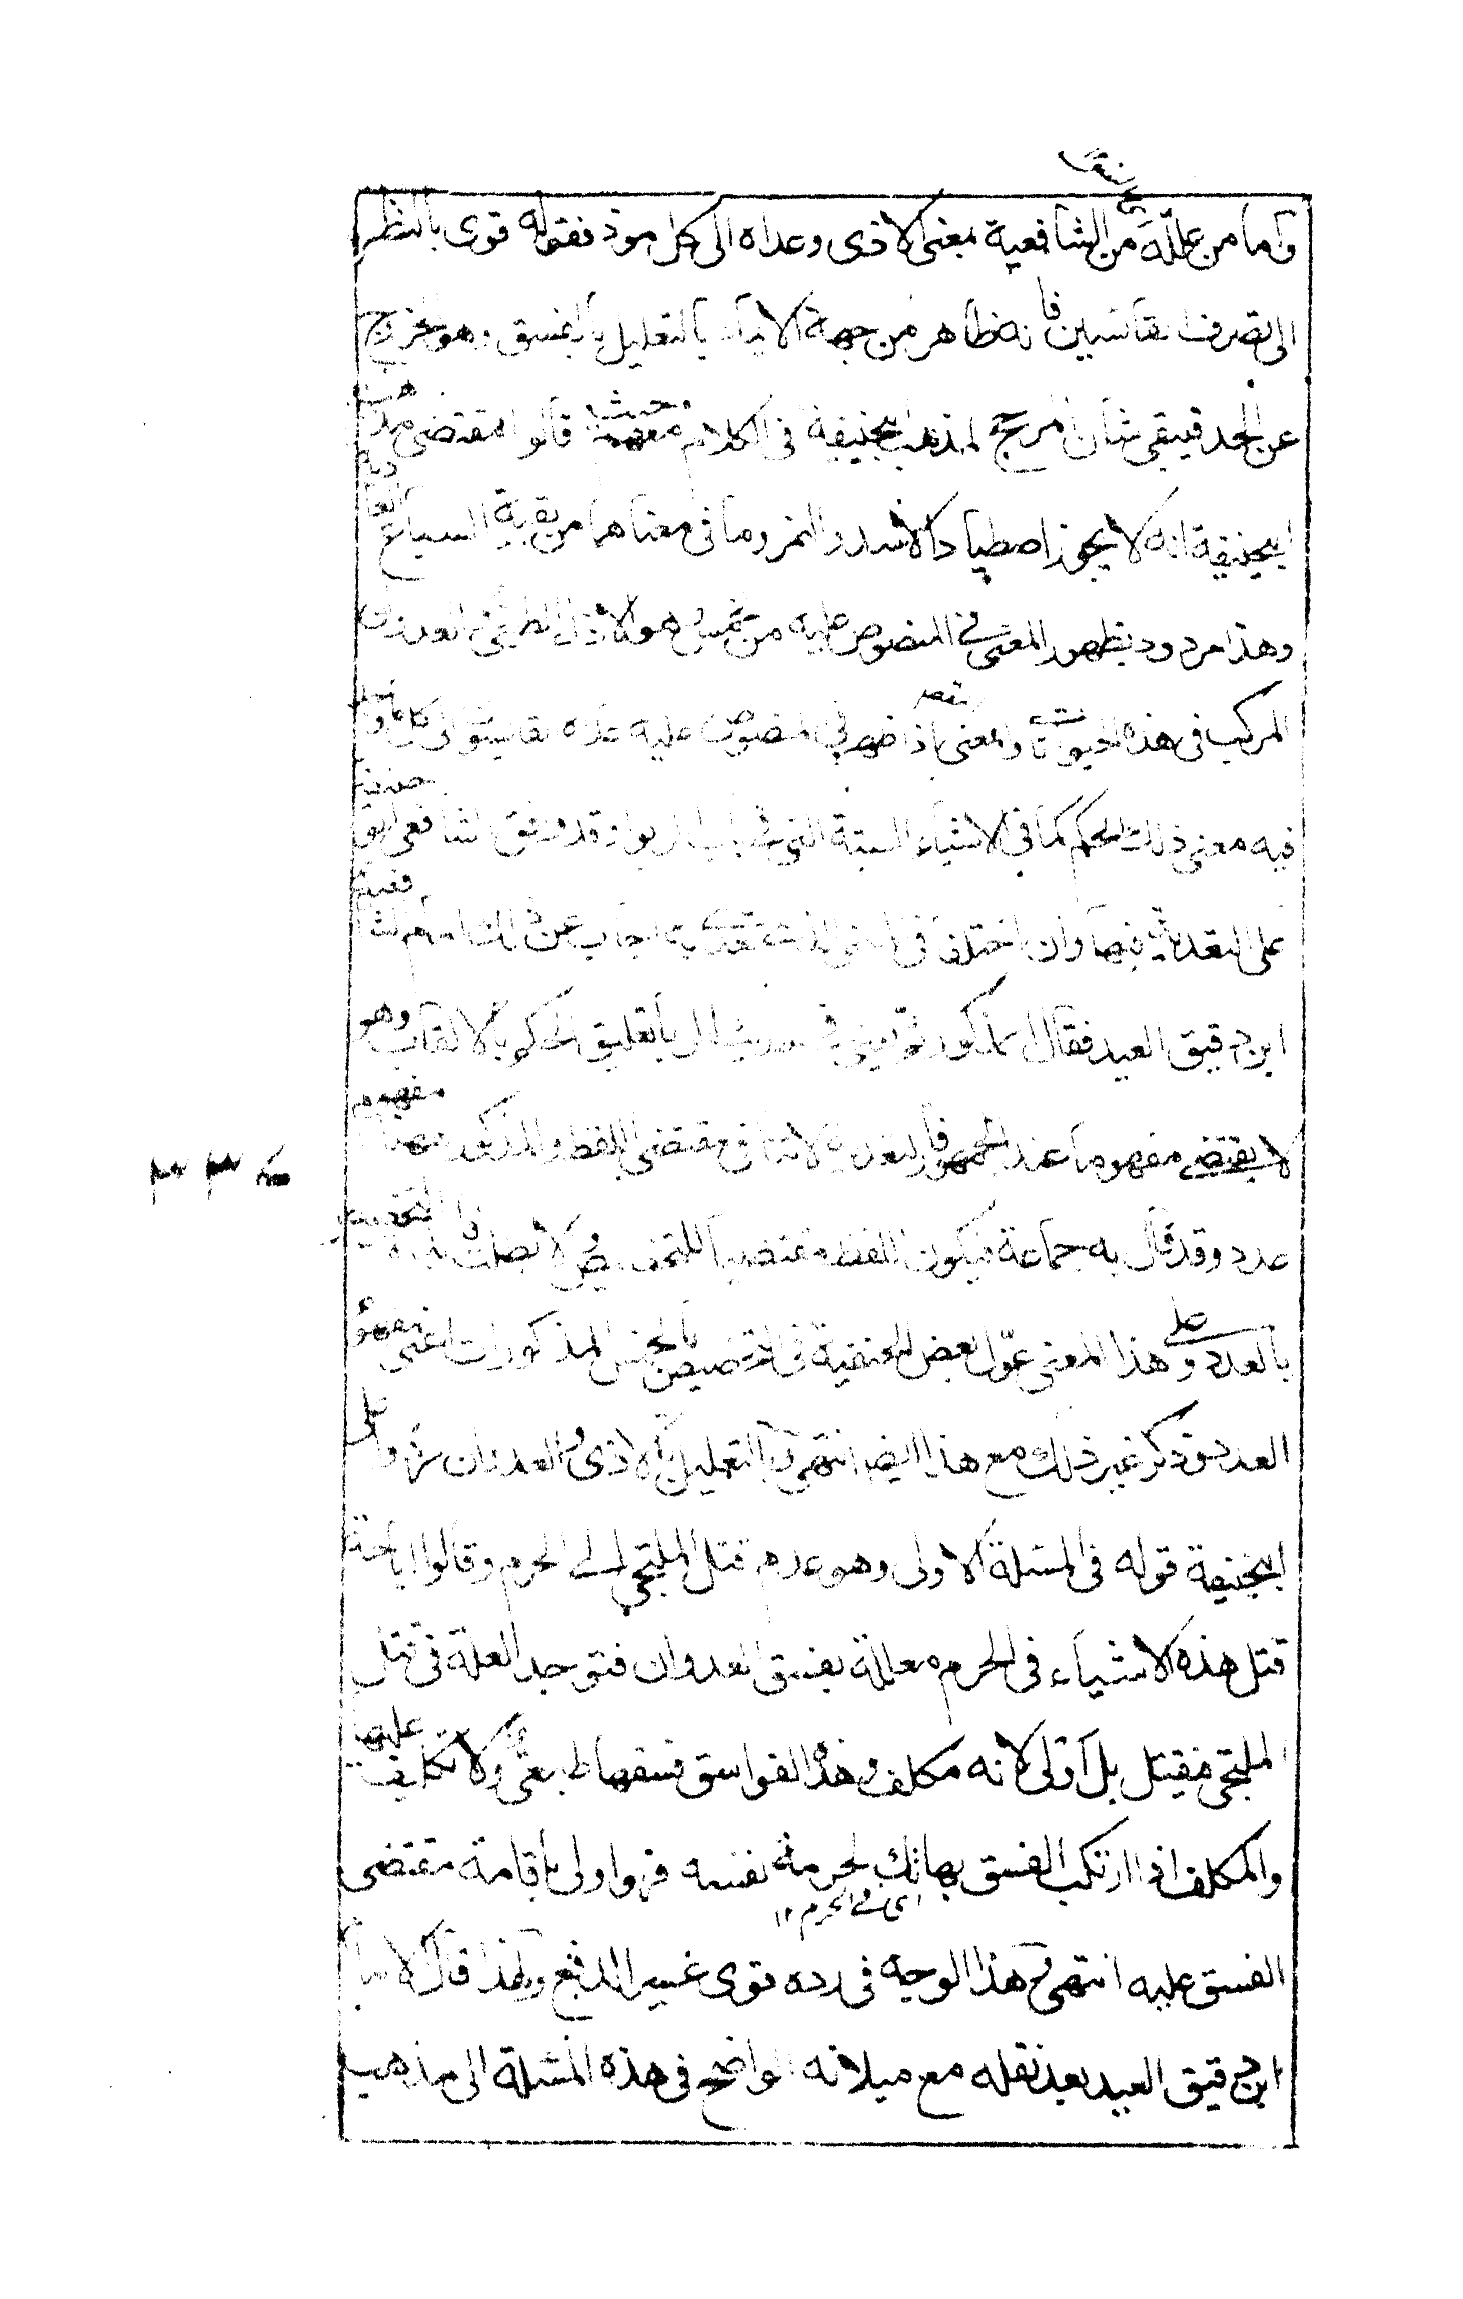 وأما من علله من الشافعية بمعنى الاذى وعداه الى كل موذ فقوله قوى بالنظر
الى تصرف القائسين فانه ظاهر من جهة الايماء بالتعليل بالفسق وهو الخروج
عن الحد فيبقى شان المرجح لمذهب ابيحنيفة فى الكلام معهم حيث قالوا مقتضى مذهب
ابيحنيفة انه لا يجوز اصطياد الاسد والنمر وما فى معناها من بقية السباع العادية
وهذا مردود بظهور المعنى فى المنصوص عليه من الخمس وهو الاذى الطبيعى والعدوان
المركب فى هذه الحيوانات والمعنى اذا ظهر فى المنصوص عليه عداه القائسون الى كل ما وجد
فيه معنى ذلك الحكم كما فى الاشياء الستة التى فى باب الربوا وقد وافق الشافعى ابو حنيفة
على التعدية فيها وان اختلفا فى المعنى الذى يعدى به اجاب عن ذلك امام الشافعية
ابن دقيق العيد فقال المذكور ثم يعنى فى حديث الربا تعليق الحكم بالالقاب وهو
لا يقتضى مفهوما عند الجمهور فالتعدية لا تنافى مقتضى اللفظ والمذكور ههنا مفهوم
عدد وقد قال به جماعة فيكون اللفظ مقتضيا للتخصيص والا بطلت فائدة التخصيص
بالعدد وعلى هذا المعنى عوّل بعض الحنفية فى التخصيص بالخمس المذكورات اعنى مفهوم
العدد وذكر غير ذلك مع هذا ايضا انتهى وبالتعليل بالاذى والعدوان رُد على
ابيحنيفة قوله فى المسئلة الاولى وهو عدم قتل الملتجى الى الحرم وقالوا اباحة
قتل هذه الاشياء فى الحرم معللة بفسق العدوان فتوجد العلة فى قتل
الملتجى فيقتل بل اولى لانه مكلف وهذه الفواسق فسقها طبيعى ولا تكليف عليها
والمكلف اذا ارتكب الفسق بهاتك لحرمة نفسه فهو اولى باقامة مقتضى
اى فى الحرم ١٢
الفسق عليه انتهى وهذا الوجه فى رده قوى غير المدفع ولهذا قال الامام
ابن دقيق العيد بعد نقله مع ميلانه الواضح فى هذه المسئلة الى مذهب